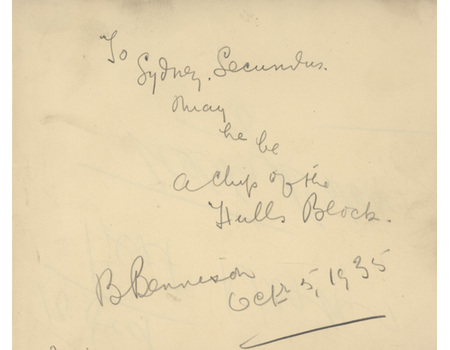 To
Sydney. Secundus.
May
he be
a chip of the
Hulls Block.
B Bennison
Oct 5, 1935